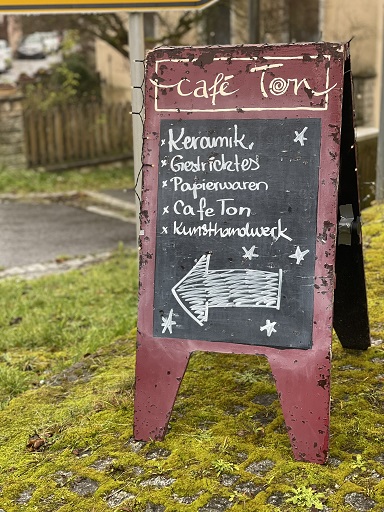 café Ton
x Keramik,
x Gestricktes
x Papierwaren
x Cafe Ton
x Kunsthandwerk